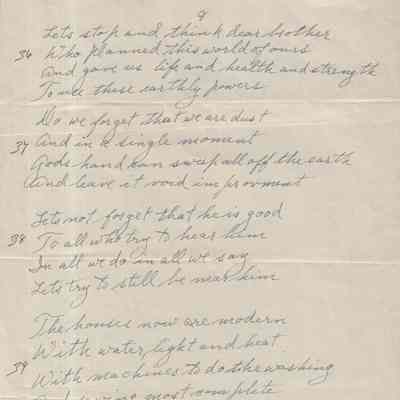 9
Lets stop and think dear brother
36 Who planned this world of ours
And gave us life and health and strength
To use these earthly powers
Do we forget that we are dust
37 And in a single moment
Gods hand can swep all off the earth
And leave it void improvment
Lets not forget that he is good
38 To all who try to hear him
In all we do in all we say
Lets try to still be near him
The houses now are modern
With water, light and heat
39 With machines to do the washing
most complete